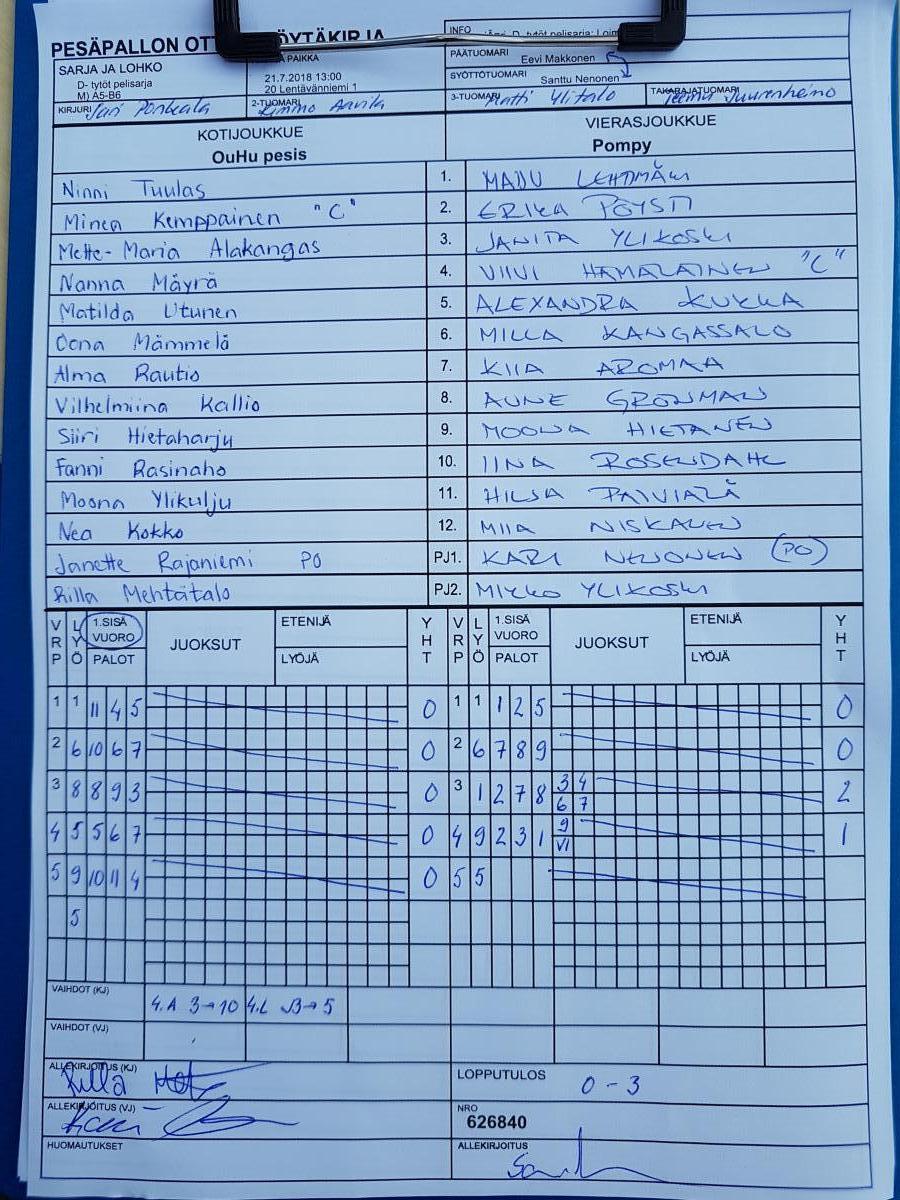 PESÄPALLON OTT ÖYTÄKIRJA
SARJA JA LOHKO
D- tytöt pelisarja
M) A5-B6
KIRJURI Jari Ponkala
PAIKKA
21.7.2018 13:00
20 Lentävänniemi 1
2-TUOMARI Kimmo Anvila
INFO
D, tytöt pelisarja:
PÄÄTUOMARI
Eevi Makkonen
SYÖTTÖTUOMARI
Santtu Nenonen
3-TUOMARI Matti Ylitalo
TAKARAJATUOMARI Teemu Juurenheimo
KOTIJOUKKUE
OuHu pesis
VIERASJOUKKUE
Pompy
Ninni Tuulas 1. MANU LEHTIMÄKI
Minea Kemppainen "C" 2. ERIKA PÖYSTI
Mette-Maria Alakangas 3. JANITA YLIKOSKI
Nanna Mäyrä 4. VIIVI HÄMÄLÄINEN "C"
Matilda Utunen 5. ALEXANDRA KUKKA
Oona Mämmelä 6. MILLA KANGASSALO
Alma Rautio 7. KIIA AROMAA
Vilhelmiina Kallio 8. AUNE GRÖNMAN
Siiri Hietaharju 9. MOONA HIETANEN
Fanni Rasinaho 10. IINA ROSENDAHL
Moona Ylikulju 11. HILJA PÄIVIÄLÄ
Nea Kokko 12. MIIA NISKANEN
Janette Rajaniemi PO PJ1. KARI NENONEN (PO)
Rilla Mehtätalo PJ2. MIKKO YLIKOSKI
VRP LYÖ 1.SISÄ VUORO PALOT JUOKSUT ETENIJÄ LYÖJÄ YHT VRP LYÖ 1.SISÄ VUORO PALOT JUOKSUT ETENIJÄ LYÖJÄ YHT
1 1 11 4 5 0 1 1 1 2 5 0
2 6 10 6 7 0 2 6 7 8 9 0
3 8 8 9 3 0 3 1 2 7 8 3 4 2
6 7
4 5 5 6 7 0 4 9 2 3 1 9 1
VI
5 9 10 11 4 0 5 5
5
VAIHDOT (KJ)
4.A 3→10 4.L J3→5
VAIHDOT (VJ)
ALLEKIRJOITUS (KJ)
Rilla
LOPPUTULOS 0-3
ALLEKIRJOITUS (VJ)
NRO
626840
HUOMAUTUKSET
ALLEKIRJOITUS